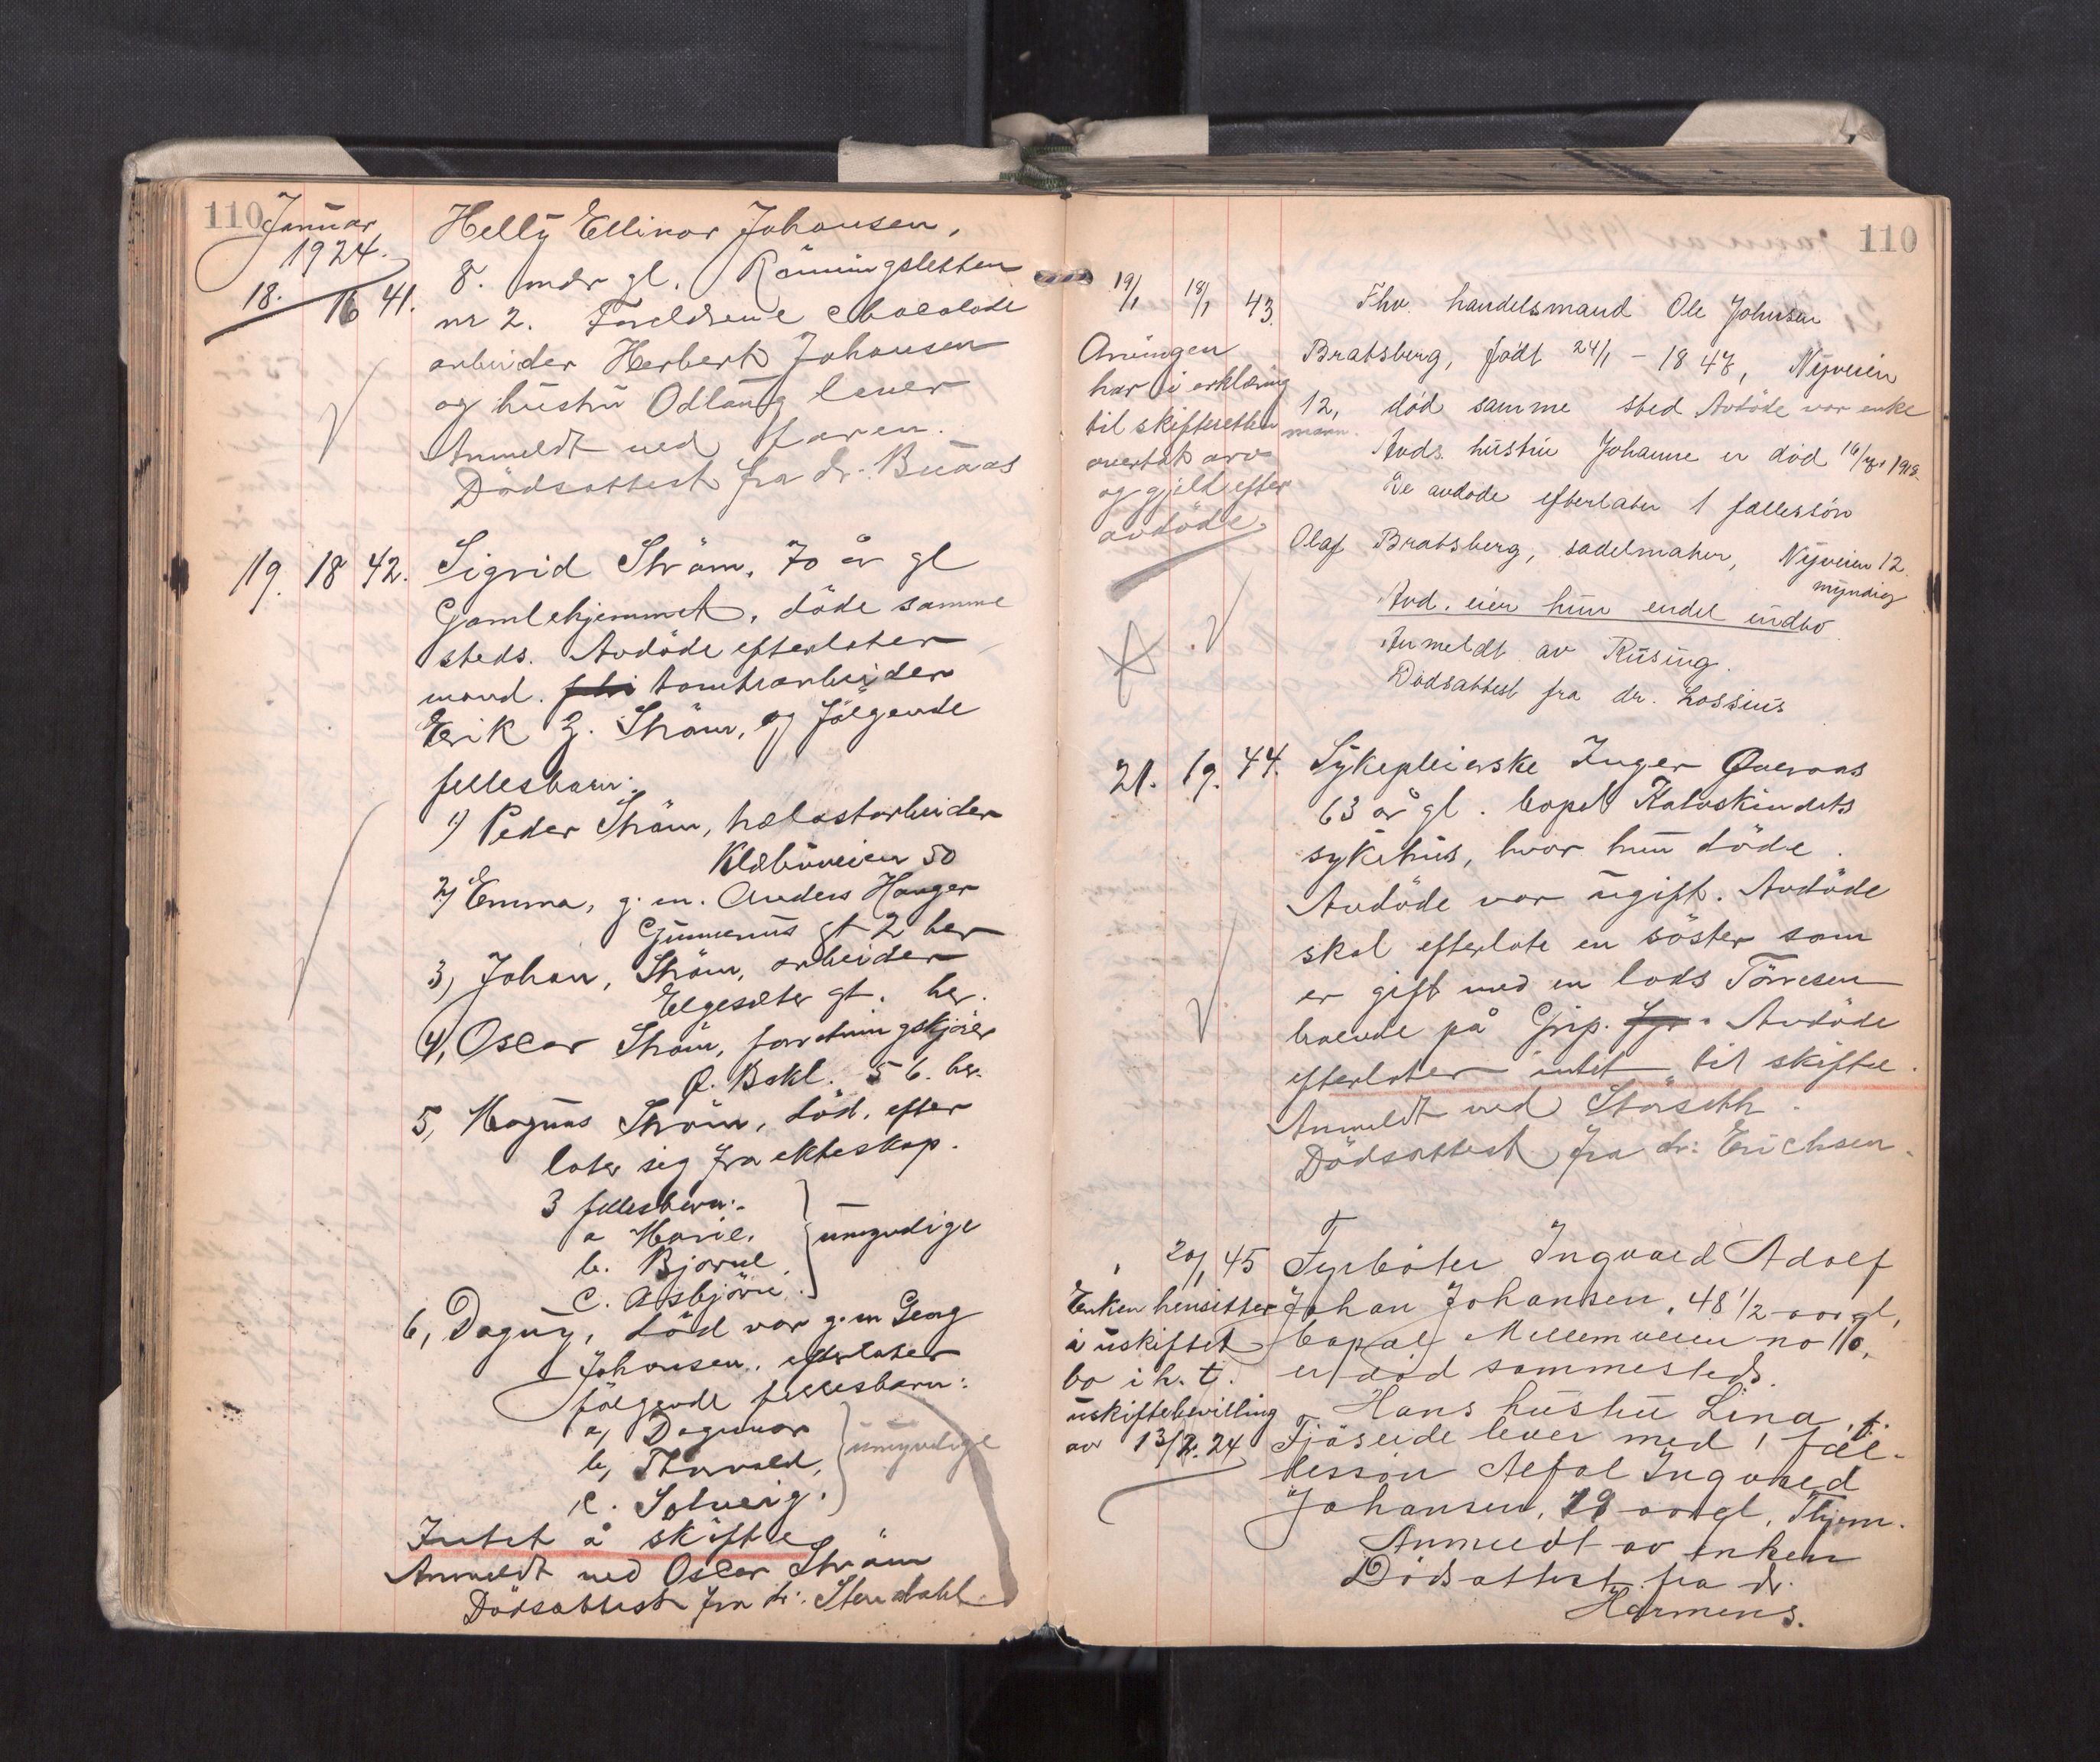 110
Januar
1924.
18. 16 41. Helly Ellinor Johansen,
8. mdr gl. Rönningsletten
nr 2. Foreldrene chocolade
arbeider Herbert Johansen
og hustru Odlaug lever
Anmeldt ved faren.
Dödsattest fra dr. Buaas
19. 18 42. Sigrid Ström, 70 år gl
Gamlehjemmet, döde samme
steds. Avdöde efterlater
mand. tomtearbeider
Erik Z. Ström, og fölgende
fellesbarn:
1) Peder Ström, arbeider
Klæbuveien 50
2) Emma, g. m. Anders Hanger
Gunnerus gt 2 her
3, Johan, Ström, arbeider
Elgesæter gt. her.
4, Oscar Ström, forretningskjörer
Ø. Bakl. 56. her.
5, Magnus Ström, död, efter
later sig fra ekteskap.
3 fellesbarn:
a Marie,
b. Bjarne,
c. Asbjörn,
umyndige
6, Dagny, död var g. m Georg
Johansen, efterlater
fölgende fellesbarn:
a, Dagmar
b, Thorvald,
c. Solveig.
umyndige
Intet å skifte
Anmeldt ved Oscar Ström
Dödsattest fra dr: Stendahl
110
19/1 18/1 43. Fhv. handelsmand Ole Johnsen
Bratsberg, födt 24/1 - 1847, Nyveien
12, död samme sted Avdöde var enke
mann.
Avds. hustru Johanne er död 1918.
De avdöde efterlater 1 fællessön
Olaf Bratsberg, sadelmaker, Nyveien 12.
myndig
Avd. eier kun endel indbo.
Anmeldt av Rising.
Dödsattest fra dr. Lossius
Arvingen
har i erklæring
til skifteretten
overtat arv
og gjeld efter
avdöde.
21. 19. 44. Sykepleierske Inger Qvernaas
63 år gl. bopel Kalvskindets
sykehus, hvor hun döde.
Avdöde var ugift. Avdöde
skal efterlate en söster som
er gift med en lods Törresen
boende på Grip. Avdöde
efterlater intet til skifte.
Anmeldt ved Storseth.
Dödsattest fra dr: Erichsen.
20/1 45 Fyrböter Ingvald Adolf
Johan Johansen, 48 1/2 aar gl,
bopæl Mellemveien no 10,
er död sammesteds.
Hans hustru Lina, f.
Fjöseide lever med 1 fæl-
lessön Alfal Ingvald
Johansen, 19 aar gl, Thjem.
Anmeldt av enken
Dödsattest fra dr.
Harmens.
Enken hensitter
i uskiftet
bo i h. t.
uskiftebevilling
av 13/2. 24